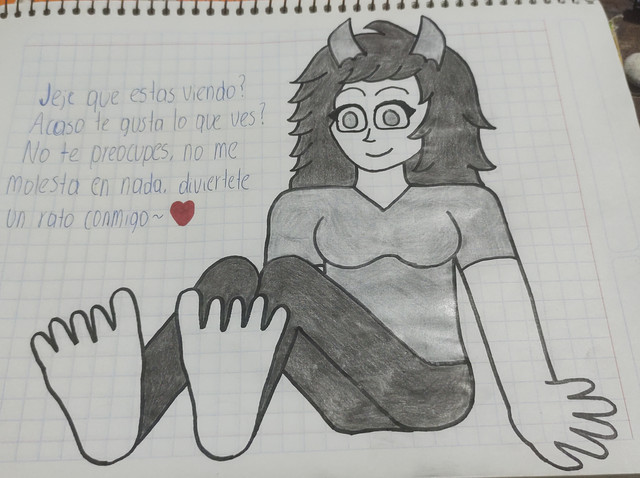 Jeje que estas viendo?
Acaso te gusta lo que ves?
No te preocupes, no me
molesta en nada, diviertete
un rato conmigo~